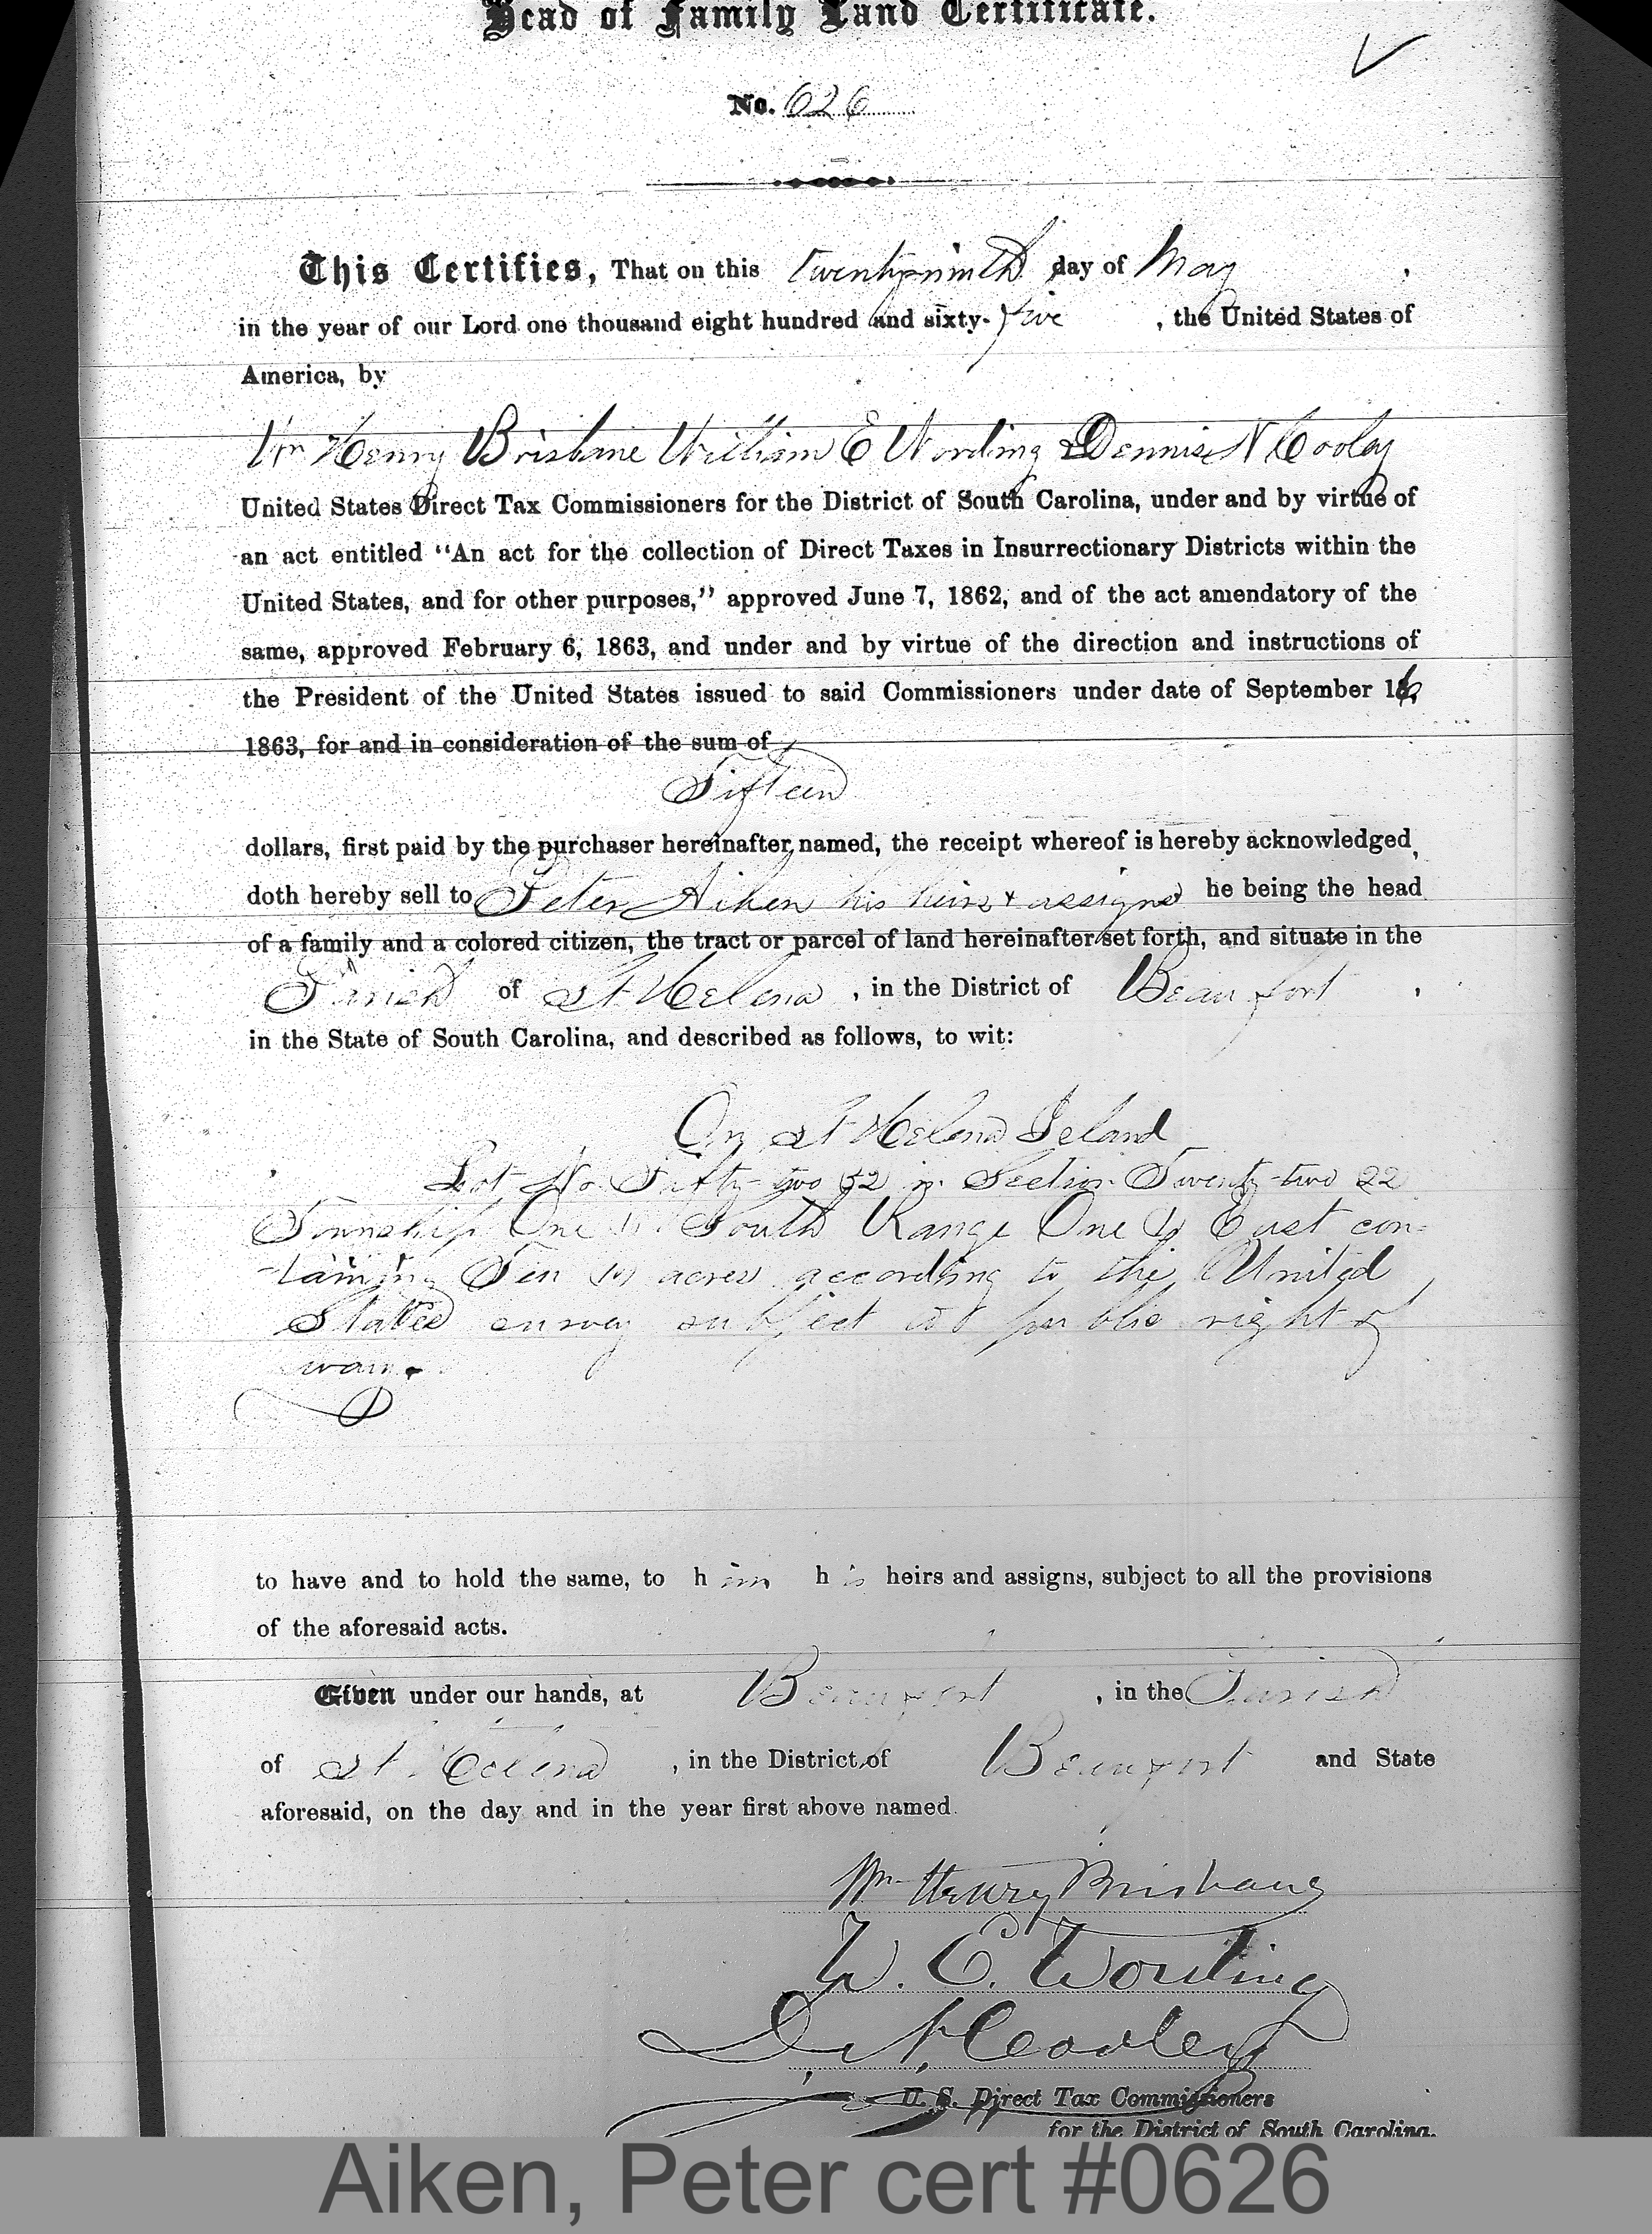 Head of Family Land Certificate.
No. 626
This Certifies, That on this twenty-ninth day of May,
in the year of our Lord one thousand eight hundred and sixty-five, the United States of
America, by
Wm Henry Brisbane William E Wording & Dennis N Cooley
United States Direct Tax Commissioners for the District of South Carolina, under and by virtue of
an act entitled "An act for the collection of Direct Taxes in Insurrectionary Districts within the
United States, and for other purposes," approved June 7, 1862, and of the act amendatory of the
same, approved February 6, 1863, and under and by virtue of the direction and instructions of
the President of the United States issued to said Commissioners under date of September 16,
1863, for and in consideration of the sum of
Fifteen
dollars, first paid by the purchaser hereinafter named, the receipt whereof is hereby acknowledged,
doth hereby sell to Peter Aiken his heirs & assigns he being the head
of a family and a colored citizen, the tract or parcel of land hereinafter set forth, and situate in the
Parish of St Helena, in the District of Beaufort,
in the State of South Carolina, and described as follows, to wit:
On St Helena Island
Lot No two in Section Twenty-two 22
Township One (1) South Range One (1) East con-
-taining Ten (10) acres according to the United
States survey subject to public right of
way.
to have and to hold the same, to him his heirs and assigns, subject to all the provisions
of the aforesaid acts.
Given under our hands, at Beaufort, in the Parish
of St Helena, in the District of Beaufort and State
aforesaid, on the day and in the year first above named.
Wm Henry Brisbane
W. E. Wording
D. N. Cooley
U. S. Direct Tax Commissioners
for the District of South Carolina.
Aiken, Peter cert #0626